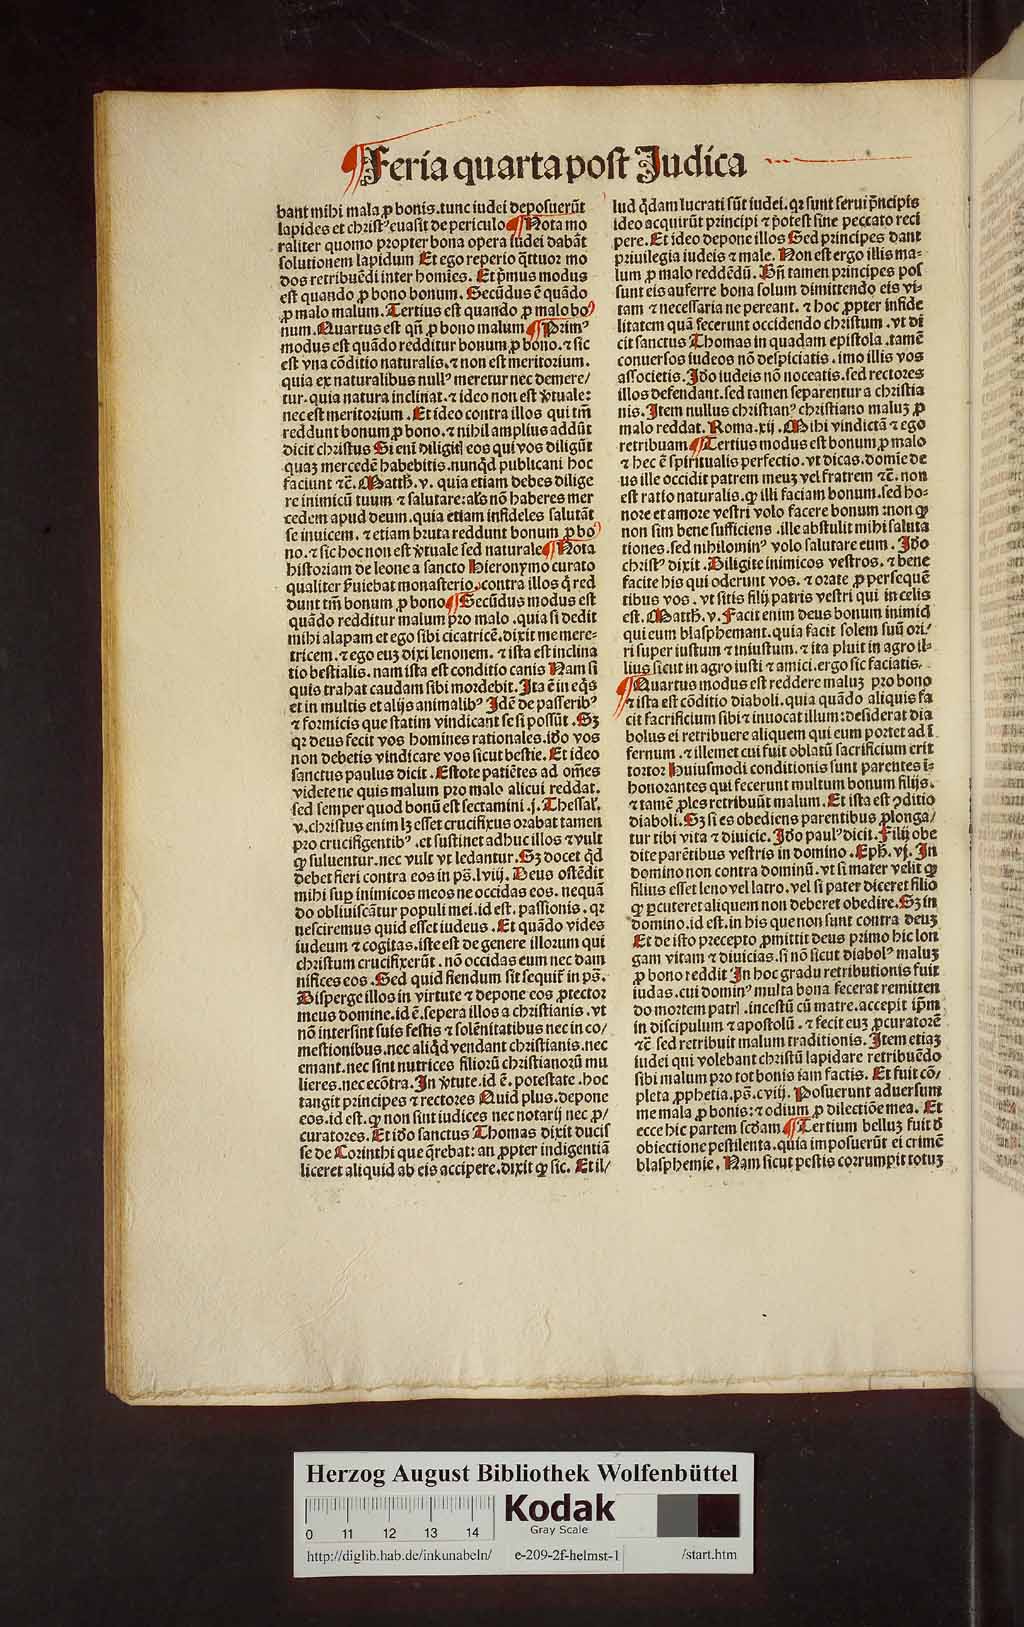 Feria quarta post Judica
bant mihi mala ꝓ bonis. tunc iudei deposuerūt
lapides et christꝰ euasit de periculo ¶ Nota mo
raliter quomo propter bona opera iudei dabāt
solutionem lapidum Et ego reperio q̄ttuor mo
dos retribuēdi inter homīes. Et p̄mus modus
est quando ꝓ bono bonum. Secūdus ē quādo
ꝓ malo malum. Tertius est quando ꝓ malo bo
num. Quartus est qn̄ ꝓ bono malum ¶ Primꝰ
modus est quādo redditur bonum ꝓ bono. ⁊ sic
est vna cōditio naturalis. ⁊ non est meritorium.
quia ex naturalibus nullꝰ meretur nec demere/
tur. quia natura inclinat. ⁊ ideo non est v̄tuale:
nec est meritorium. Et ideo contra illos qui tm̄
reddunt bonum ꝓ bono. ⁊ nihil amplius addūt
dicit christus Si eni diligit eos qui vos diligūt
quaꝫ mercedē habebitis. nunqd publicani hoc
faciunt ⁊c̄. Matth. v. quia etiam debes dilige
re inimicū tuum ⁊ salutare: als nō haberes mer
cedem apud deum. quia etiam infideles salutāt
se inuicem. ⁊ etiam bruta reddunt bonum ꝓ bo
no. ⁊ sic hoc non est v̄tuale sed naturale ¶ Nota
historiam de leone a sancto Hieronymo curato
qualiter s̄uiebat monasterio. contra illos q̄ red
dunt tm̄ bonum ꝓ bono ¶ Secūdus modus est
quādo redditur malum pro malo. quia si dedit
mihi alapam et ego sibi cicatricē. dixit me mere=
tricem. ⁊ ego euꝫ dixi lenonem. ⁊ ista est inclina
tio bestialis. nam ista est conditio canis Nam si
quis trahat caudam sibi mordebit. Ita ē in eq̄s
et in multis et alijs animalibꝰ Idē de passeribꝰ
⁊ formicis que statim vindicant se si possūt. Sꝫ
qꝛ deus fecit vos homines rationales. iō vos
non debetis vindicare vos sicut bestie. Et ideo
sanctus paulus dicit. Estote patiētes ad om̄es
videte ne quis malum pro malo alicui reddat.
sed semper quod bonū est sectamini. j. Thessal.
v. christus enim lꝫ esset crucifixus orabat tamen
pro crucifigentibꝰ. et sustinet adhuc illos ⁊ vult
ꝙ saluentur. nec vult vt ledantur. Sꝫ docet qd
debet fieri contra eos in ps̄. lviij. Deus ostēdit
mihi sup inimicos meos ne occidas eos. nequā
do obliuiscātur populi mei. id est. passionis. qꝛ
nesciremus quid esset iudeus. Et quādo vides
iudeum ⁊ cogitas. iste est de genere illorum qui
christum crucifixerūt. nō occidas eum nec dam
nifices eos. Sed quid fiendum sit sequit in ps̄.
Disperge illos in virtute ⁊ depone eos ꝓtector
meus domine. id ē. sepera illos a christianis. vt
nō intersint suis festis ⁊ solēnitatibus nec in co/
mestionibus. nec aliqd vendant christianis. nec
emant. nec sint nutrices filiorū christianorū mu
lieres. nec ecōtra. In v̄tute. id ē. potestate. hoc
tangit principes ⁊ rectores Quid plus. depone
eos. id est. ꝙ non sint iudices nec notarij nec ꝓ/
curatores. Et iō sanctus Thomas dixit ducis
se de Corinthi que q̄rebat: an ꝓpter indigentiā
liceret aliquid ab eis accipere. dixit ꝙ sic. Et il/
lud qd̄am lucrati sūt iudei. qꝛ sunt serui p̄ncipis
ideo acquirūt principi ⁊ p̄otest sine peccato reci
pere. Et ideo depone illos Sed principes dant
priuilegia iudeis ⁊ male. Non est ergo illis ma=
lum ꝓ malo reddēdū. Bn̄ tamen principes pos
sunt eis auferre bona solum dimittendo eis vi=
tam ⁊ necessaria ne pereant. ⁊ hoc ꝓpter infide
litatem quā fecerunt occidendo christum. vt di
cit sanctus Thomas in quadam epistola. tamē
conuersos iudeos nō despiciatis. imo illis vos
associetis. Iō iudeis nō noceatis. sed rectores
illos defendant. sed tamen separentur a christia
nis. Item nullus christianꝰ christiano maluꝫ ꝓ
malo reddat. Roma. xij. Mihi vindictā ⁊ ego
retribuam ¶ Tertius modus est bonum ꝓ malo
⁊ hec ē spiritualis perfectio. vt dicas. domine de
us ille occidit patrem meuꝫ vel fratrem ⁊c̄. non
est ratio naturalis. ꝙ illi faciam bonum. sed ho=
nore et amore vestri volo facere bonum: non ꝙ
non sim bene sufficiens. ille abstulit mihi saluta
tiones. sed nihilominꝰ volo salutare eum. Iō
christꝰ dixit. Diligite inimicos vestros. ⁊ bene
facite his qui oderunt vos. ⁊ orate ꝓ persequē
tibus vos. vt sitis filij patris vestri qui in celis
est. Matth. v. Facit enim deus bonum inimici
qui eum blasphemant. quia facit solem suū ori/
ri super iustum ⁊ iniustum. ⁊ ita pluit in agro il=
lius sicut in agro iusti ⁊ amici. ergo sic faciatis.
¶ Quartus modus est reddere maluꝫ pro bono
⁊ ista est cōditio diaboli. quia quādo aliquis fa
cit sacrificium sibi ⁊ inuocat illum: desiderat dia
bolus ei retribuere aliquem qui eum portet ad ī
fernum. ⁊ illemet cui fuit oblatū sacrificium erit
tortor Huiusmodi conditionis sunt parentes i=
honorantes qui fecerunt multum bonum filijs.
⁊ tamē ꝓles retribuūt malum. Et ista est ꝯditio
diaboli. Sꝫ si es obediens parentibus ꝓlonga/
tur tibi vita ⁊ diuicie. Iō paulꝰ dicit. Filij obe
dite parētibus vestris in domino. Eph. vj. In
domino non contra dominū. vt si mater velit ꝙ
filius esset leno vel latro. vel si pater diceret filio
ꝙ ꝑcuteret aliquem non deberet obedire. Sꝫ in
domino. id est. in his que non sunt contra deuꝫ
Et de isto precepto ꝓmittit deus primo hic lon
gam vitam ⁊ diuicias. si nō sicut diabolꝰ maluꝫ
ꝓ bono reddit In hoc gradu retributionis fuit
iudas. cui dominꝰ multa bona fecerat remitten
do mortem patr. incestū cū matre. accepit ip̄m
in discipulum ⁊ apostolū. ⁊ fecit euꝫ ꝓcuratorē
⁊c̄ sed retribuit malum traditionis. Item etiaꝫ
iudei qui volebant christū lapidare retribuēdo
sibi malum pro tot bonis iam factis. Et fuit cō/
pleta ꝓphetia. ps̄. cviij. Posuerunt aduersum
me mala ꝓ bonis: ⁊ odium ꝓ dilectiōe mea. Et
ecce hic partem scdam ¶ Tertium belluꝫ fuit d̄
obiectione pestilenta. quia imposuerūt ei crimē
blasphemie. Nam sicut pestis corrumpit totuꝫ
Herzog August Bibliothek Wolfenbüttel
Kodak
Gray Scale
0 11 12 13 14
http://diglib.hab.de/inkunabeln/ e-209-2f-helmst-1 /start.htm